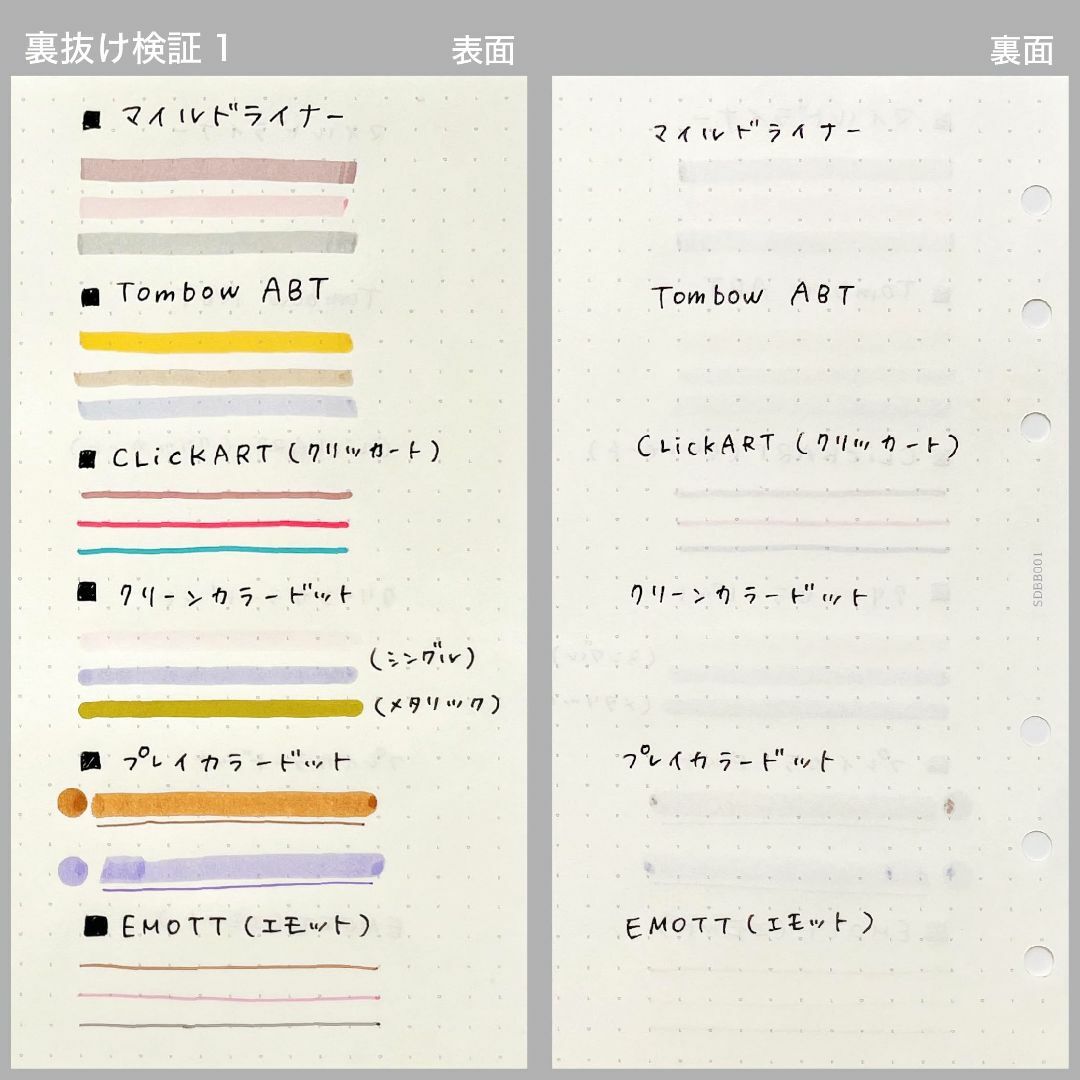 裏抜け検証1
表面
■ マイルドライナー
■ Tombow ABT
■ CLiCKART (クリッカート)
■ クリーンカラードット
(シングル)
(メタリック)
■ プレイカラードット
■ EMOTT (エモット)
裏面
マイルドライナー
Tombow ABT
CLiCKART (クリッカート)
クリーンカラードット
プレイカラードット
EMOTT (エモット)
SDBB001